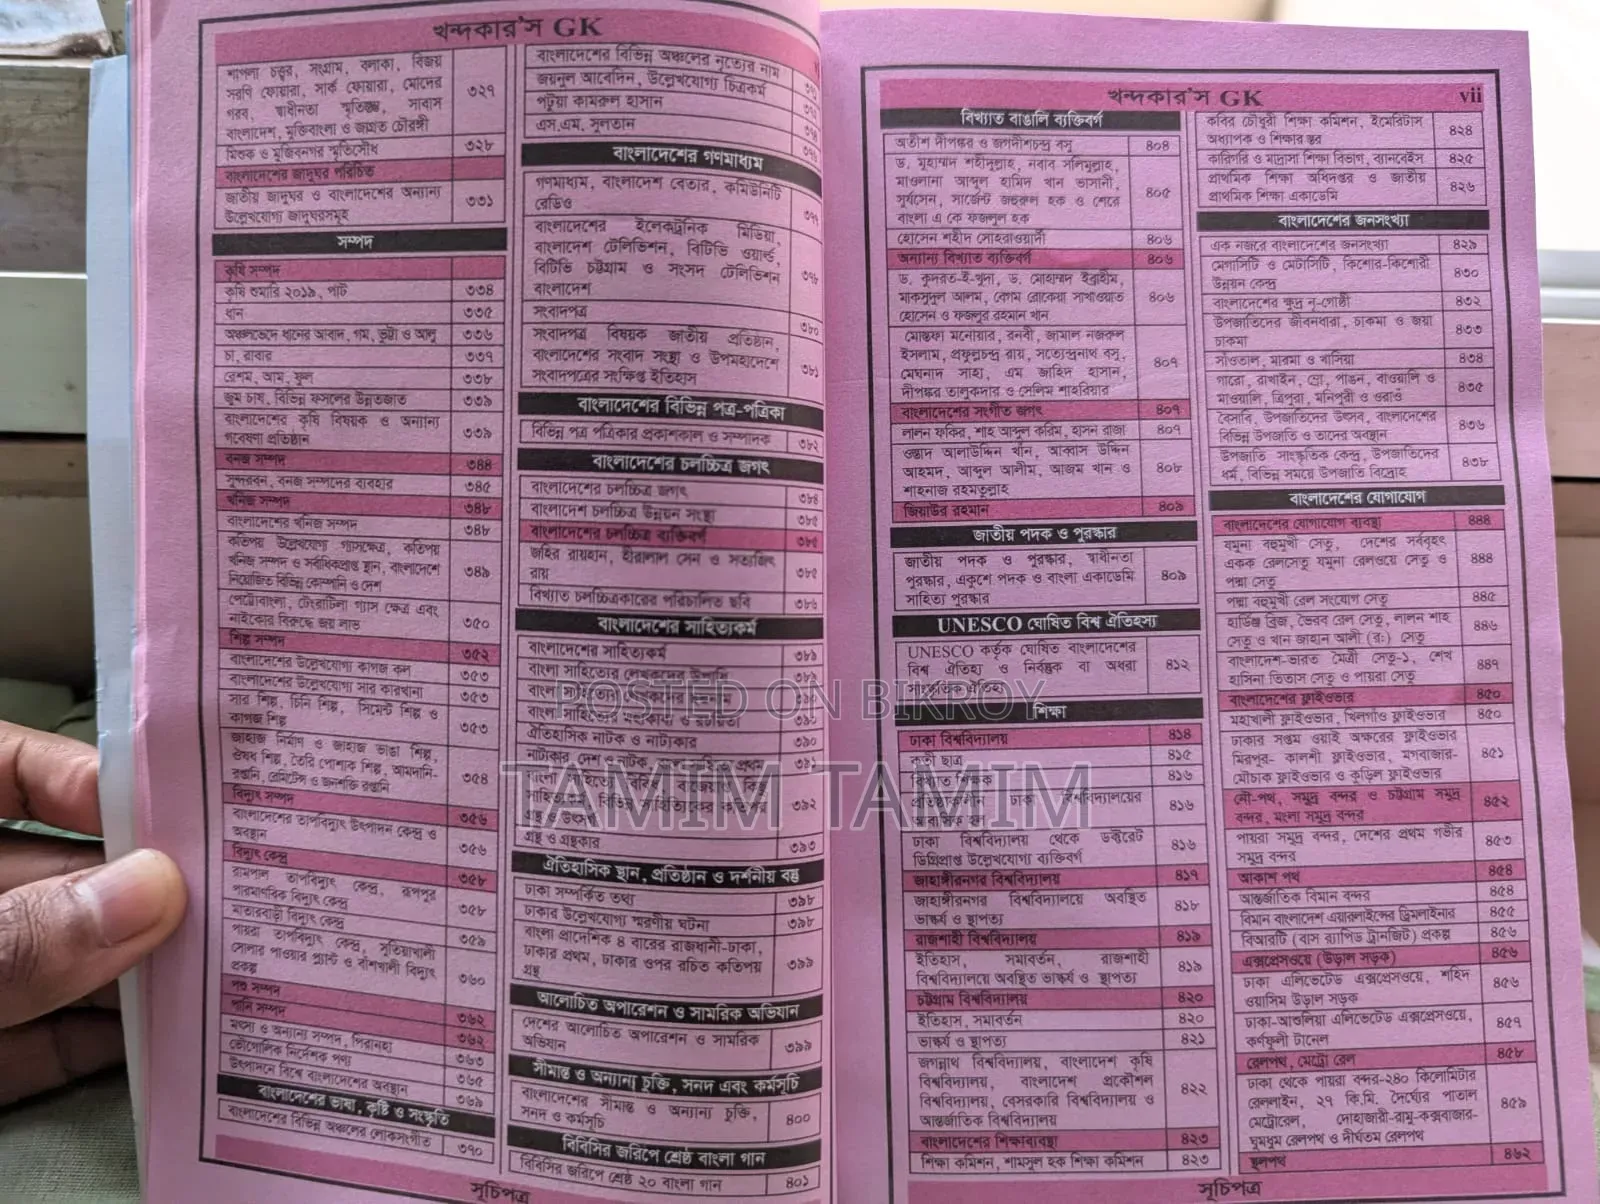 খন্দকার'স GK
শাপলা চত্বর, সংগ্রাম, বলাকা, বিজয়
সরণি ফোয়ারা, সার্ক ফোয়ারা, মোদের
গরব, স্বাধীনতা স্মৃতিস্তম্ভ, সাবাস
বাংলাদেশ, মুক্তিবাংলা ও জাগ্রত চৌরঙ্গী ৩২৭
মিশুক ও মুজিবনগর স্মৃতিসৌধ ৩২৮
বাংলাদেশের জাদুঘর পরিচিত
জাতীয় জাদুঘর ও বাংলাদেশের অন্যান্য
উল্লেখযোগ্য জাদুঘরসমূহ ৩৩১
সম্পদ
কৃষি সম্পদ
কৃষি শুমারি ২০১৯, পাট ৩৩৪
ধান ৩৩৫
অঞ্চলভেদে ধানের আবাদ, গম, ভুট্টা ও আলু ৩৩৬
চা, রাবার ৩৩৭
রেশম, আম, ফুল ৩৩৮
জুম চাষ, বিভিন্ন ফসলের উন্নতজাত ৩৩৯
বাংলাদেশের কৃষি বিষয়ক ও অন্যান্য
গবেষণা প্রতিষ্ঠান ৩৩৯
বনজ সম্পদ ৩৪৪
সুন্দরবন, বনজ সম্পদের ব্যবহার ৩৪৫
খনিজ সম্পদ ৩৪৮
বাংলাদেশের খনিজ সম্পদ ৩৪৮
কতিপয় উল্লেখযোগ্য গ্যাসক্ষেত্র, কতিপয়
খনিজ সম্পদ ও সর্বাধিকপ্রাপ্ত স্থান, বাংলাদেশে
নিয়োজিত বিভিন্ন কোম্পানি ও দেশ ৩৪৯
পেট্রোবাংলা, টেংরাটিলা গ্যাস ক্ষেত্র এবং
নাইকোর বিরুদ্ধে জয় লাভ ৩৫০
শিল্প সম্পদ ৩৫২
বাংলাদেশের উল্লেখযোগ্য কাগজ কল ৩৫৩
বাংলাদেশের উল্লেখযোগ্য সার কারখানা ৩৫৩
সার শিল্প, চিনি শিল্প, সিমেন্ট শিল্প ও
কাগজ শিল্প ৩৫৩
জাহাজ নির্মাণ ও জাহাজ ভাঙা শিল্প,
ঔষধ শিল্প, তৈরি পোশাক শিল্প, আমদানি-
রপ্তানি, রেমিটেন্স ও জনশক্তি রপ্তানি ৩৫৪
বিদ্যুৎ সম্পদ ৩৫৬
বাংলাদেশের তাপবিদ্যুৎ উৎপাদন কেন্দ্র ও
অবস্থান ৩৫৬
বিদ্যুৎ কেন্দ্র ৩৫৮
রামপাল তাপবিদ্যুৎ কেন্দ্র, রূপপুর
পারমাণবিক বিদ্যুৎ কেন্দ্র ৩৫৮
মাতারবাড়ী বিদ্যুৎ কেন্দ্র ৩৫৯
পায়রা তাপবিদ্যুৎ কেন্দ্র, সুতিয়াখালী
সোলার পাওয়ার প্ল্যান্ট ও বাঁশখালী বিদ্যুৎ
প্রকল্প ৩৬০
পশু সম্পদ ৩৬২
পানি সম্পদ ৩৬২
মৎস্য ও অন্যান্য সম্পদ, পিরানহা ৩৬৩
ভৌগোলিক নির্দেশক পণ্য ৩৬৫
উৎপাদনে বিশ্বে বাংলাদেশের অবস্থান ৩৬৯
বাংলাদেশের ভাষা, কৃষ্টি ও সংস্কৃতি
বাংলাদেশের বিভিন্ন অঞ্চলের লোকসংগীত ৩৭০
বাংলাদেশের বিভিন্ন অঞ্চলের নৃত্যের নাম
জয়নুল আবেদিন, উল্লেখযোগ্য চিত্রকর্ম
পটুয়া কামরুল হাসান
এস.এম. সুলতান
বাংলাদেশের গণমাধ্যম
গণমাধ্যম, বাংলাদেশ বেতার, কমিউনিটি
রেডিও ৩৭৭
বাংলাদেশের ইলেকট্রনিক মিডিয়া,
বাংলাদেশ টেলিভিশন, বিটিভি ওয়ার্ল্ড,
বিটিভি চট্টগ্রাম ও সংসদ টেলিভিশন
বাংলাদেশ ৩৭৮
সংবাদপত্র ৩৮০
সংবাদপত্র বিষয়ক জাতীয় প্রতিষ্ঠান,
বাংলাদেশের সংবাদ সংস্থা ও উপমহাদেশে
সংবাদপত্রের সংক্ষিপ্ত ইতিহাস ৩৮১
বাংলাদেশের বিভিন্ন পত্র-পত্রিকা
বিভিন্ন পত্র পত্রিকার প্রকাশকাল ও সম্পাদক ৩৮২
বাংলাদেশের চলচ্চিত্র জগৎ
বাংলাদেশের চলচ্চিত্র জগৎ ৩৮৪
বাংলাদেশ চলচ্চিত্র উন্নয়ন সংস্থা ৩৮৫
বাংলাদেশের চলচ্চিত্র ব্যক্তিবর্গ ৩৮৫
জহির রায়হান, হীরালাল সেন ও সত্যজিৎ
রায় ৩৮৫
বিখ্যাত চলচ্চিত্রকারের পরিচালিত ছবি ৩৮৬
বাংলাদেশের সাহিত্যকর্ম
বাংলাদেশের সাহিত্যকর্ম ৩৮৯
বাংলা সাহিত্যের লেখকদের উপাধি
ঐতিহাসিক নাটক ও নাট্যকার ৩৯০
৩৯১
৩৯২
গ্রন্থ ও গ্রন্থকার ৩৯৩
ঐতিহাসিক স্থান, প্রতিষ্ঠান ও দর্শনীয় বস্তু
ঢাকা সম্পর্কিত তথ্য ৩৯৮
ঢাকার উল্লেখযোগ্য স্মরণীয় ঘটনা ৩৯৮
বাংলা প্রাদেশিক ৪ বারের রাজধানী-ঢাকা,
ঢাকার প্রথম, ঢাকার ওপর রচিত কতিপয়
গ্রন্থ ৩৯৯
আলোচিত অপারেশন ও সামরিক অভিযান
দেশের আলোচিত অপারেশন ও সামরিক
অভিযান ৩৯৯
সীমান্ত ও অন্যান্য চুক্তি, সনদ এবং কর্মসূচি
বাংলাদেশের সীমান্ত ও অন্যান্য চুক্তি,
সনদ ও কর্মসূচি ৪০০
বিবিসির জরিপে শ্রেষ্ঠ বাংলা গান
বিবিসির জরিপে শ্রেষ্ঠ ২০ বাংলা গান ৪০১
সূচিপত্র
খন্দকার'স GK vii
বিখ্যাত বাঙালি ব্যক্তিবর্গ
অতীশ দীপঙ্কর ও জগদীশচন্দ্র বসু ৪০৪
ড. মুহাম্মদ শহীদুল্লাহ, নবাব সলিমুল্লাহ,
মাওলানা আব্দুল হামিদ খান ভাসানী,
সূর্যসেন, সার্জেন্ট জহুরুল হক ও শেরে
বাংলা এ কে ফজলুল হক ৪০৫
হোসেন শহীদ সোহরাওয়ার্দী ৪০৬
অন্যান্য বিখ্যাত ব্যক্তিবর্গ ৪০৬
ড. কুদরত-ই-খুদা, ড. মোহাম্মদ ইব্রাহীম,
মাকসুদুল আলম, বেগম রোকেয়া সাখাওয়াত
হোসেন ও ফজলুর রহমান খান ৪০৬
মোস্তফা মনোয়ার, রনবী, জামাল নজরুল
ইসলাম, প্রফুল্লচন্দ্র রায়, সত্যেন্দ্রনাথ বসু,
মেঘনাদ সাহা, এম জাহিদ হাসান,
দীপঙ্কর তালুকদার ও সেলিম শাহরিয়ার ৪০৭
বাংলাদেশের সংগীত জগৎ ৪০৭
লালন ফকির, শাহ আব্দুল করিম, হাসন রাজা ৪০৭
ওস্তাদ আলাউদ্দিন খাঁন, আব্বাস উদ্দিন
আহমদ, আব্দুল আলীম, আজম খান ও
শাহনাজ রহমতুল্লাহ ৪০৮
জিয়াউর রহমান ৪০৯
জাতীয় পদক ও পুরস্কার
জাতীয় পদক ও পুরস্কার, স্বাধীনতা
পুরস্কার, একুশে পদক ও বাংলা একাডেমি
সাহিত্য পুরস্কার ৪০৯
UNESCO ঘোষিত বিশ্ব ঐতিহ্য
UNESCO কর্তৃক ঘোষিত বাংলাদেশের
বিশ্ব ঐতিহ্য ও নির্বস্তুক বা অধরা
সাংস্কৃতিক ঐতিহ্য ৪১২
শিক্ষা
ঢাকা বিশ্ববিদ্যালয় ৪১৪
কৃতী ছাত্র ৪১৫
বিখ্যাত শিক্ষক ৪১৬
প্রতিষ্ঠাকালীন ঢাকা বিশ্ববিদ্যালয়ের
আবাসিক হল ৪১৬
ঢাকা বিশ্ববিদ্যালয় থেকে ডক্টরেট
ডিগ্রিপ্রাপ্ত উল্লেখযোগ্য ব্যক্তিবর্গ ৪১৬
জাহাঙ্গীরনগর বিশ্ববিদ্যালয় ৪১৭
জাহাঙ্গীরনগর বিশ্ববিদ্যালয়ে অবস্থিত
ভাস্কর্য ও স্থাপত্য ৪১৮
রাজশাহী বিশ্ববিদ্যালয় ৪১৯
ইতিহাস, সমাবর্তন, রাজশাহী
বিশ্ববিদ্যালয়ে অবস্থিত ভাস্কর্য ও স্থাপত্য ৪১৯
চট্টগ্রাম বিশ্ববিদ্যালয় ৪২০
ইতিহাস, সমাবর্তন ৪২০
ভাস্কর্য ও স্থাপত্য ৪২১
জগন্নাথ বিশ্ববিদ্যালয়, বাংলাদেশ কৃষি
বিশ্ববিদ্যালয়, বাংলাদেশ প্রকৌশল
বিশ্ববিদ্যালয়, বেসরকারি বিশ্ববিদ্যালয় ও
আন্তর্জাতিক বিশ্ববিদ্যালয় ৪২২
বাংলাদেশের শিক্ষাব্যবস্থা ৪২৩
শিক্ষা কমিশন, শামসুল হক শিক্ষা কমিশন ৪২৩
কবির চৌধুরী শিক্ষা কমিশন, ইমেরিটাস
অধ্যাপক ও শিক্ষার স্তর ৪২৪
কারিগরি ও মাদ্রাসা শিক্ষা বিভাগ, ব্যানবেইস ৪২৫
প্রাথমিক শিক্ষা অধিদপ্তর ও জাতীয়
প্রাথমিক শিক্ষা একাডেমি ৪২৬
বাংলাদেশের জনসংখ্যা
এক নজরে বাংলাদেশের জনসংখ্যা ৪২৯
মেগাসিটি ও মেটাসিটি, কিশোর-কিশোরী
উন্নয়ন কেন্দ্র ৪৩০
বাংলাদেশের ক্ষুদ্র নৃ-গোষ্ঠী ৪৩২
উপজাতিদের জীবনধারা, চাকমা ও জয়া
চাকমা ৪৩৩
সাঁওতাল, মারমা ও খাসিয়া ৪৩৪
গারো, রাখাইন, ম্রো, পাঙন, বাওয়ালি ও
মাওয়ালি, ত্রিপুরা, মনিপুরী ও ওরাও ৪৩৫
বৈসাবি, উপজাতিদের উৎসব, বাংলাদেশের
বিভিন্ন উপজাতি ও তাদের অবস্থান ৪৩৬
উপজাতি সাংস্কৃতিক কেন্দ্র, উপজাতিদের
ধর্ম, বিভিন্ন সময়ে উপজাতি বিদ্রোহ ৪৩৮
বাংলাদেশের যোগাযোগ
বাংলাদেশের যোগাযোগ ব্যবস্থা ৪৪৪
যমুনা বহুমুখী সেতু, দেশের সর্ববৃহৎ
একক রেলসেতু যমুনা রেলওয়ে সেতু ও
পদ্মা সেতু ৪৪৪
পদ্মা বহুমুখী রেল সংযোগ সেতু ৪৪৫
হার্ডিঞ্জ ব্রিজ, ভৈরব রেল সেতু, লালন শাহ
সেতু ও খান জাহান আলী (র:) সেতু ৪৪৬
বাংলাদেশ-ভারত মৈত্রী সেতু-১, শেখ
হাসিনা তিতাস সেতু ও পায়রা সেতু ৪৪৭
বাংলাদেশের ফ্লাইওভার ৪৫০
মহাখালী ফ্লাইওভার, খিলগাঁও ফ্লাইওভার ৪৫০
ঢাকার সপ্তম ওয়াই অক্ষরের ফ্লাইওভার
মিরপুর- কালশী ফ্লাইওভার, মগবাজার-
মৌচাক ফ্লাইওভার ও কুড়িল ফ্লাইওভার ৪৫১
নৌ-পথ, সমুদ্র বন্দর ও চট্টগ্রাম সমুদ্র
বন্দর, মংলা সমুদ্র বন্দর ৪৫২
পায়রা সমুদ্র বন্দর, দেশের প্রথম গভীর
সমুদ্র বন্দর ৪৫৩
আকাশ পথ ৪৫৪
আন্তর্জাতিক বিমান বন্দর ৪৫৪
বিমান বাংলাদেশ এয়ারলাইন্সের ড্রিমলাইনার ৪৫৫
বিআরটি (বাস র‍্যাপিড ট্রানজিট) প্রকল্প ৪৫৬
এক্সপ্রেসওয়ে (উড়াল সড়ক) ৪৫৬
ঢাকা এলিভেটেড এক্সপ্রেসওয়ে, শহিদ
ওয়াসিম উড়াল সড়ক ৪৫৬
ঢাকা-আশুলিয়া এলিভেটেড এক্সপ্রেসওয়ে,
কর্ণফুলী টানেল ৪৫৭
রেলপথ, মেট্রো রেল ৪৫৮
ঢাকা থেকে পায়রা বন্দর-২৪০ কিলোমিটার
রেললাইন, ২৭ কি.মি. দৈর্ঘ্যের পাতাল
মেট্রোরেল, দোহাজারী-রামু-কক্সবাজার-
ঘুমধুম রেলপথ ও দীর্ঘতম রেলপথ ৪৫৯
স্থলপথ ৪৬২
সূচিপত্র
POSTED ON BIKROY
TAMIM TAMIM